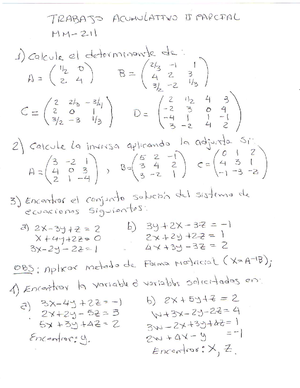 TRABAJO ACUMULATIVO II PARCIAL
MM-211
1) Calcule el determinante de:
A = (1/2 0
2 4)
B = (2/3 -1 1
4 2 3
3/2 -2 1/3)
C = (2 2/3 -3/4
2 0 1
3/2 -3 1/3)
D = (2 1/2 4 3
-2 3 0 4
-4 1 1 -1
3 -2 4 2)
2) Calcule la inversa aplicando la adjunta si:
A = (3 -2 1
4 0 3
2 1 -4),
B = (5 2 -1
3 4 2
3 -2 1)
C = (0 1 2
4 3 1
-1 -3 -2)
3) Encontrar el conjunto solución del sistema de
ecuaciones siguientes:
a) 2x-3y+z=2
x+4y+2z=0
3x-2y-2z=1
b) 3y+2x-3z=-1
2x+2y+2z=1
4x+3y-3z=2
OBS: Aplicar metodo de Forma Matricial (X=A⁻¹B);
4) Encontrar la variable o variables solicitadas en:
a) 3x-4y+2z=-1
2x+2y-5z=3
5x+3y+4z=2
Encontrar: y.
b) 2x+5y+z=2
w+3x-2y-2z=4
3w-2x+3y+4z=1
2w+4x-y=-1
Encontrar: x, z.